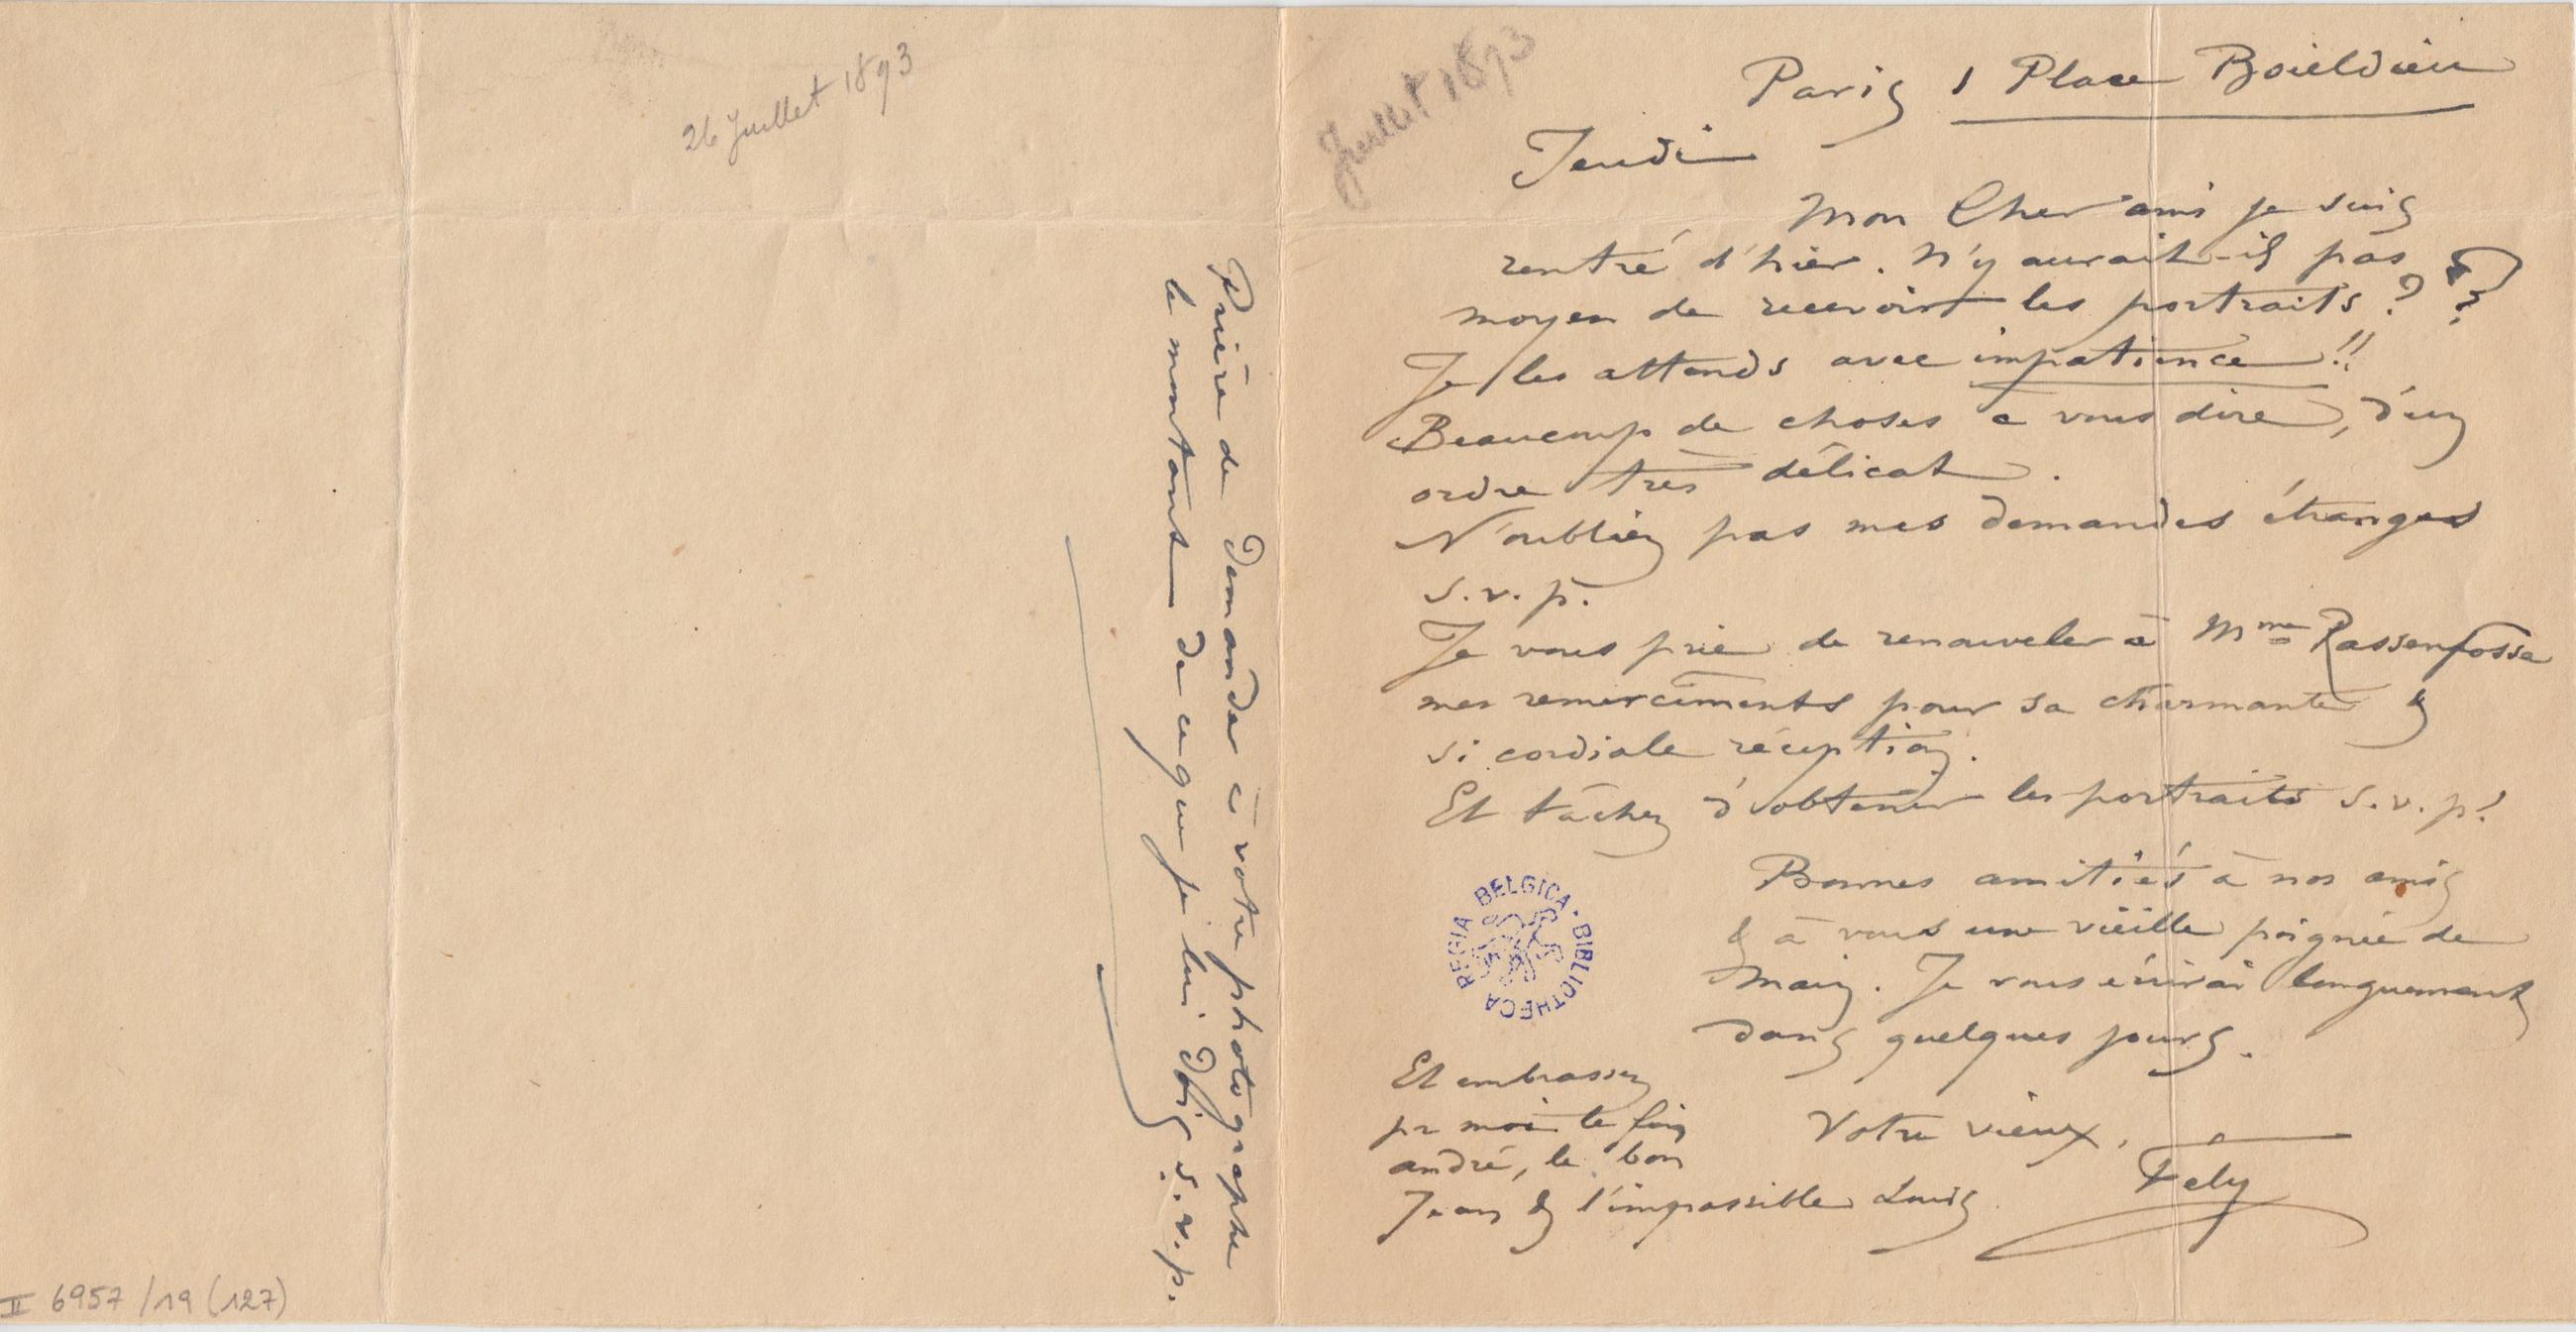 26 Juillet 1893
Prière de demander à votre photographe
le montant de ce que je lui dois s.v.p.
II 6957/19 (127)
Juillet 1893
Paris 1 Place Boieldieu
Jeudi
Mon Cher ami je suis
rentré d'hier. N'y aurait-il pas
moyen de recevoir les portraits ? ?
Je les attends avec impatience !!
Beaucoup de choses à vous dire, d'un
ordre très délicat.
N'oubliez pas mes demandes étranges
s.v.p.
Je vous prie de renouveler à Mme Rassenfosse
mes remerciments pour sa charmante &
si cordiale réception.
Et tâchez d'obtenir les portraits s.v.p!
Bonnes amitiés à nos amis
& à vous une vieille poignée de
main. Je vous écrirai longuement
dans quelques jours.
Et embrassez
pr moi le fin
andré, le bon
Jean & l'impassible Louis
Votre vieux,
Fely
REGIA BELGICA · BIBLIOTHECA